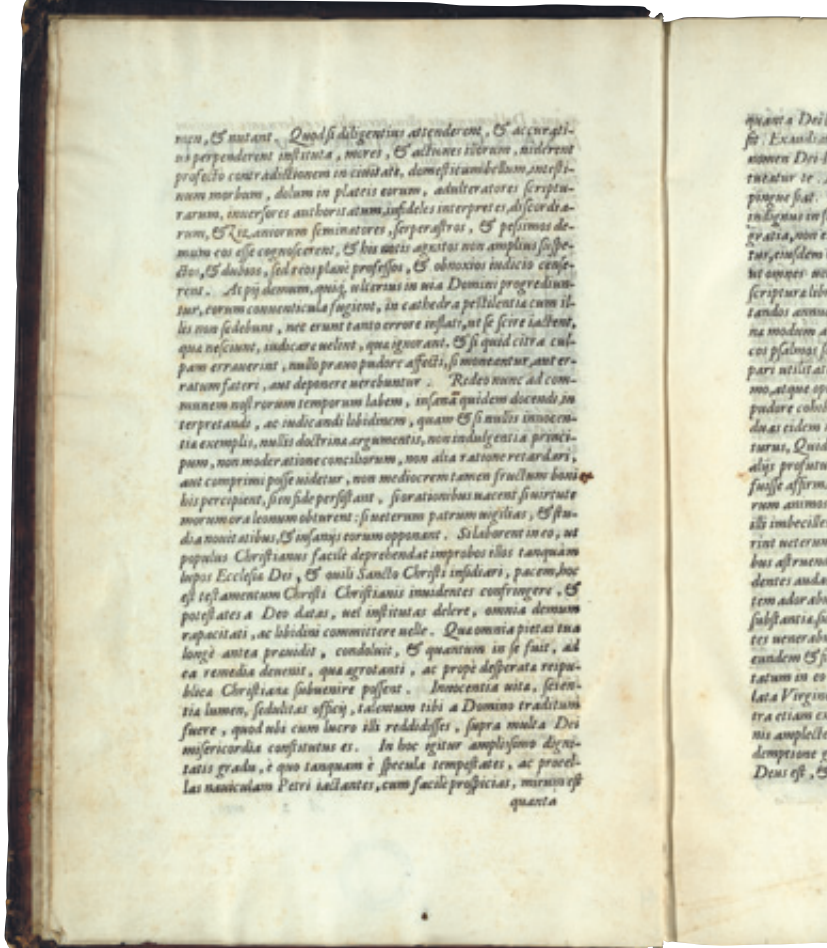 men, & nutant. Quod si diligentius attenderent, & accurati-
us perpenderent instituta, mores, & actiones illorum, uiderent
profecto contradictionem in ciuitate, domesticum bellum, intesti-
num morbum, dolum in plateis eorum, adulteratores scriptu-
rarum, inuersores authoritatum, infideles interpretes, discordia-
rum, & Zizaniorum seminatores, serperastros, & pessimos de-
mum eos esse cognoscerent, & his notis agnitos non amplius suspe-
ctos, & dubios, sed reos planè professos, & obnoxios iudicio cense-
rent. At pij demum, quiq; ulterius in uia Domini progrediun-
tur, eorum conuenticula fugient, in cathedra pestilentia cum il-
lis non sedebunt, nec erunt tanto errore inflati, ut se scire iactent,
qua nesciunt, iudicare uelint, qua ignorant. & si quid citra cul-
pam errauerint, nullo prauo pudore affecti, si moneantur, aut er-
ratum fateri, aut deponere uerebuntur. Redeo nunc ad com-
munem nostrorum temporum labem, insanā quidem docendi, in
terpretandi, ac iudicandi libidinem, quam & si nullis innocen-
tia exemplis, nullis doctrina argumentis, non indulgentia princi-
pum, non moderatione conciliorum, non alia ratione retardari,
aut comprimi posse uidetur, non mediocrem tamen fructum boni ex
his percipient, si en fide persistant, si orationibus uacent si uirtute
morum ora leonum obturent: si ueterum patrum uigilias, & stu-
dia nouitatibus, & insanijs eorum opponant. Si laborent in eo, ut
populus Christianus facilè deprehendat improbos illos tanquàm
lupos Ecclesia Dei, & ouili Sancto Christi insidiari, pacem, hoc
est testamentum Christi Christianis inuidentes confringere, &
potestates a Deo datas, uel institutas delere, omnia demum
rapacitati, ac libidini committere uelle. Qua omnia pietas tua
longè antea prouidit, condoluit, & quantum in se fuit, ad
ea remedia deuenit, qua agrotanti, ac propè desperata reipu-
blica Christiana subuenire possent. Innocentia uita, scien-
tia lumen, sedulitas officij, talentum tibi a Domino traditum
fuere, quod ubi cum lucro illi reddidisses, supra multa Dei
misericordia constitutus es. In hoc igitur amplissimo digni-
tatis gradu, è quo tanquam è specula tempestates, ac procel-
las nauiculam Petri iactantes, cum facilè prospicias, mirum est
quanta
quanta Dei
sit. Exaudia
nomen Dei
tueatur te.
pingue fiat.
indignus in
gratia, non e
tur, eiusdem
ut omnes
scriptura lib
tandos annu
na modum a
cos psalmos
pari utilitat
mo, atque op
pudore cohi
duas eidem
turus, Quod
alijs profutu
fuisse affirm
rum animos
illi imbecille
rint ueterum
bus astruen
dentes auda
tem adorab
substantia, su
tes uenerab
eundem &
tatum in eo
lata Virgin
tra etiam ex
nis amplecte
demptione
Deus est, &